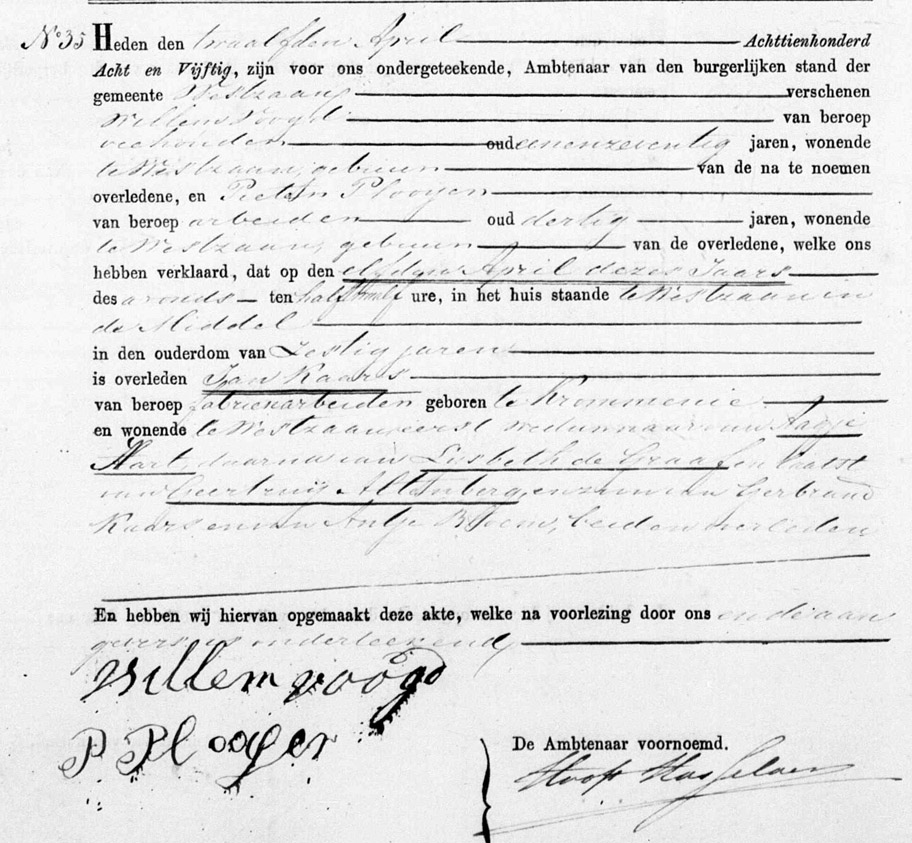 No 35 Heden den twaalfden April Achttienhonderd
Acht en Vijftig, zijn voor ons ondergeteekende, Ambtenaar van den burgerlijken stand der
gemeente Westzaan verschenen
Willem Voogd van beroep
veehouder oud eenenzeventig jaren, wonende
te Westzaan, gebuur van de na te noemen
overledene, en Pieter Plooyer
van beroep arbeider oud dertig jaren, wonende
te Westzaan, gebuur van de overledene, welke ons
hebben verklaard, dat op den elfden April dezes Jaars
des avonds ten half twaalf ure, in het huis staande te Westzaan in
de Middel
in den ouderdom van Zestig jaren
is overleden Jan Kaars
van beroep fabriekarbeider geboren te Krommenie
en wonende te Westzaan, eerst weduwnaar van Aagje
Hart, daarna van Lijsbeth de Graaf en laatst
van Geertruij Altenberg, en zoon van Gerbrand
Kaars en van Antje Bloem, beiden overleden
En hebben wij hiervan opgemaakt deze akte, welke na voorlezing door ons en de aan
gevers is onderteekend
Willem voogd
P Plooyer
De Ambtenaar voornoemd.